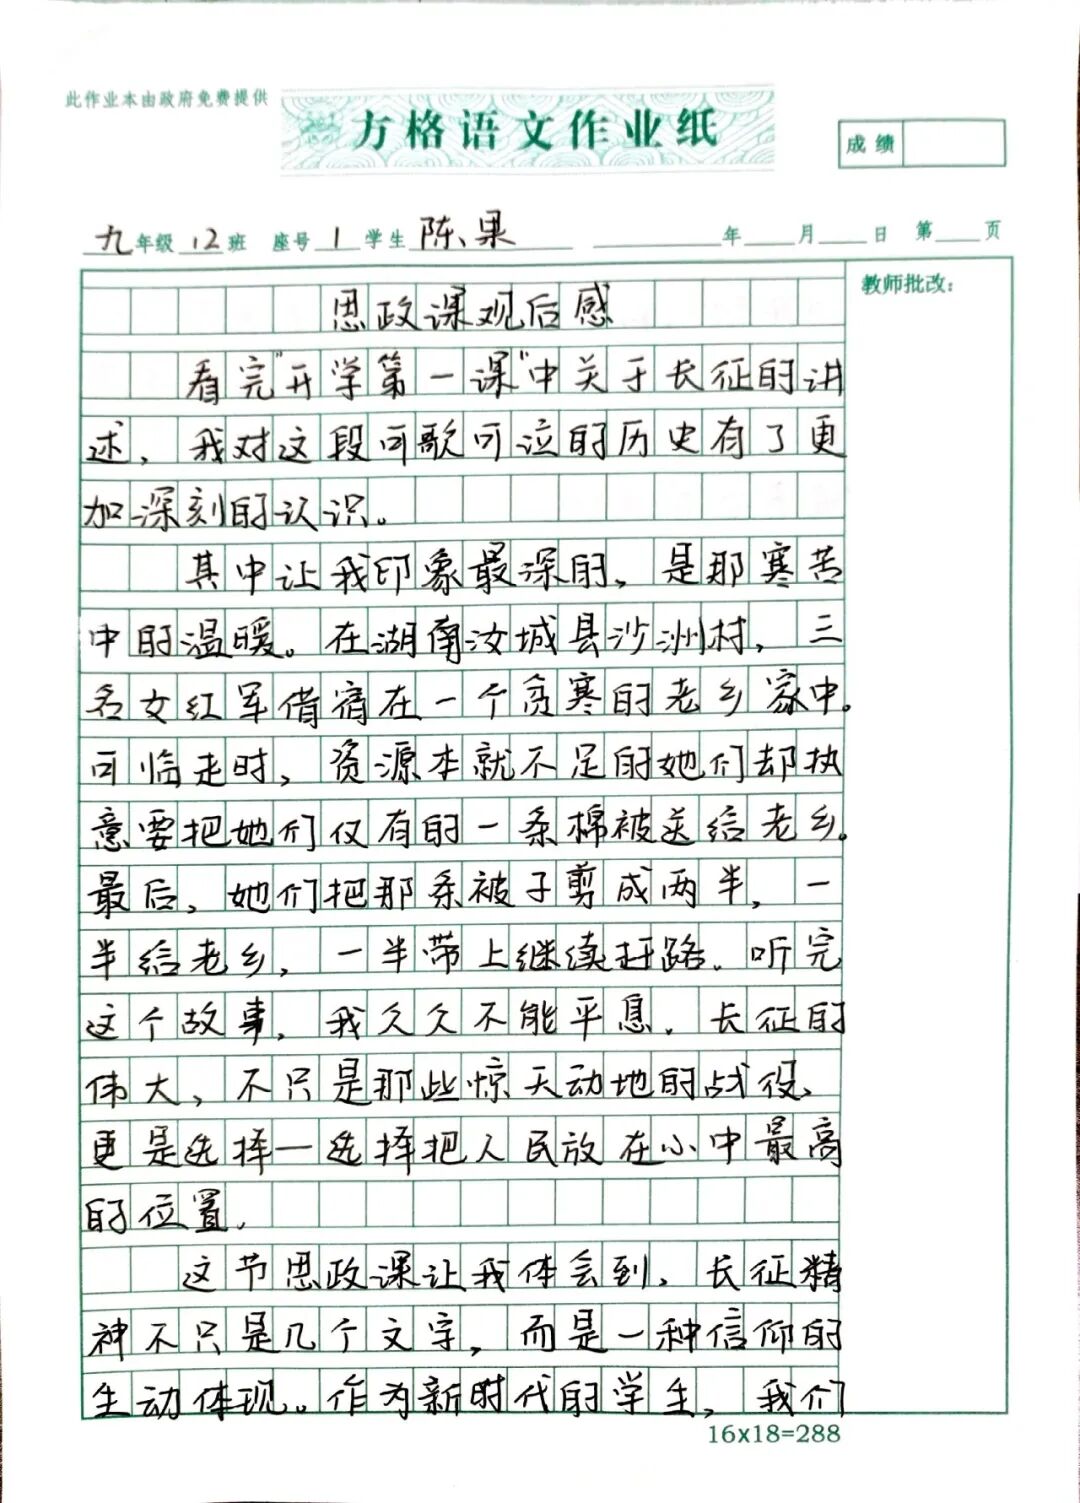 此作业本由政府免费提供
方格语文作业纸
成绩
九年级12班 座号1学生陈果 年 月 日 第 页
教师批改：
思政课观后感
看完"开学第一课"中关于长征的讲
述，我对这段可歌可泣的历史有了更
加深刻的认识。
其中让我印象最深的，是那寒苦
中的温暖。在湖南汝城县沙洲村，三
名女红军借宿在一个贫寒的老乡家中。
可临走时，资源本就不足的她们却执
意要把她们仅有的一条棉被送给老乡。
最后，她们把那条被子剪成两半，一
半给老乡，一半带上继续赶路。听完
这个故事，我久久不能平息。长征的
伟大，不只是那些惊天动地的战役、
更是选择一选择把人民放在心中最高
的位置。
这节思政课让我体会到，长征精
神不只是几个文字，而是一种信仰的
生动体现。作为新时代的学生，我们
16x18=288